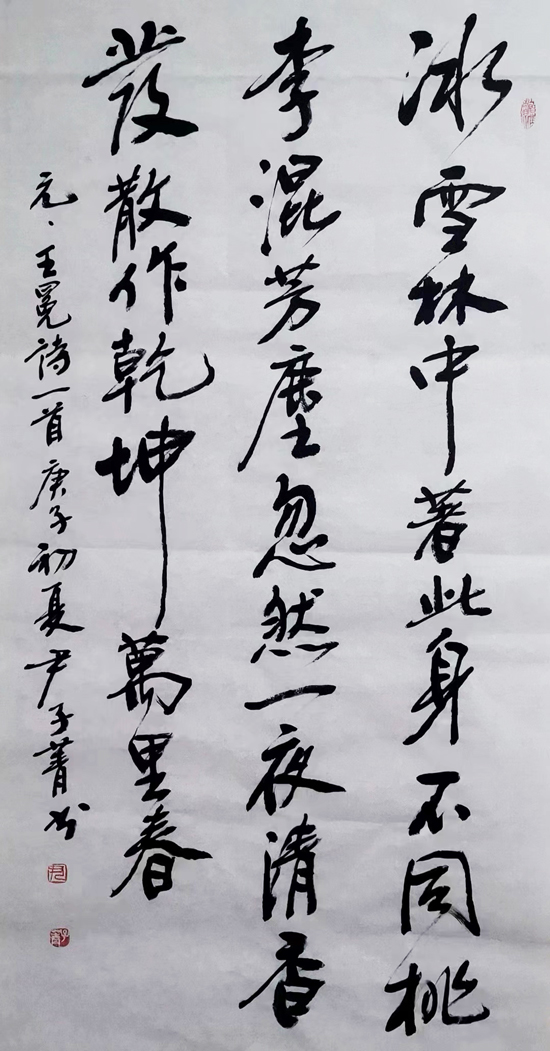 冰雪林中著此身不同桃
李混芳塵忽然一夜清香
發散作乾坤萬里春
元、王冕詩一首庚子初夏尹子菁书